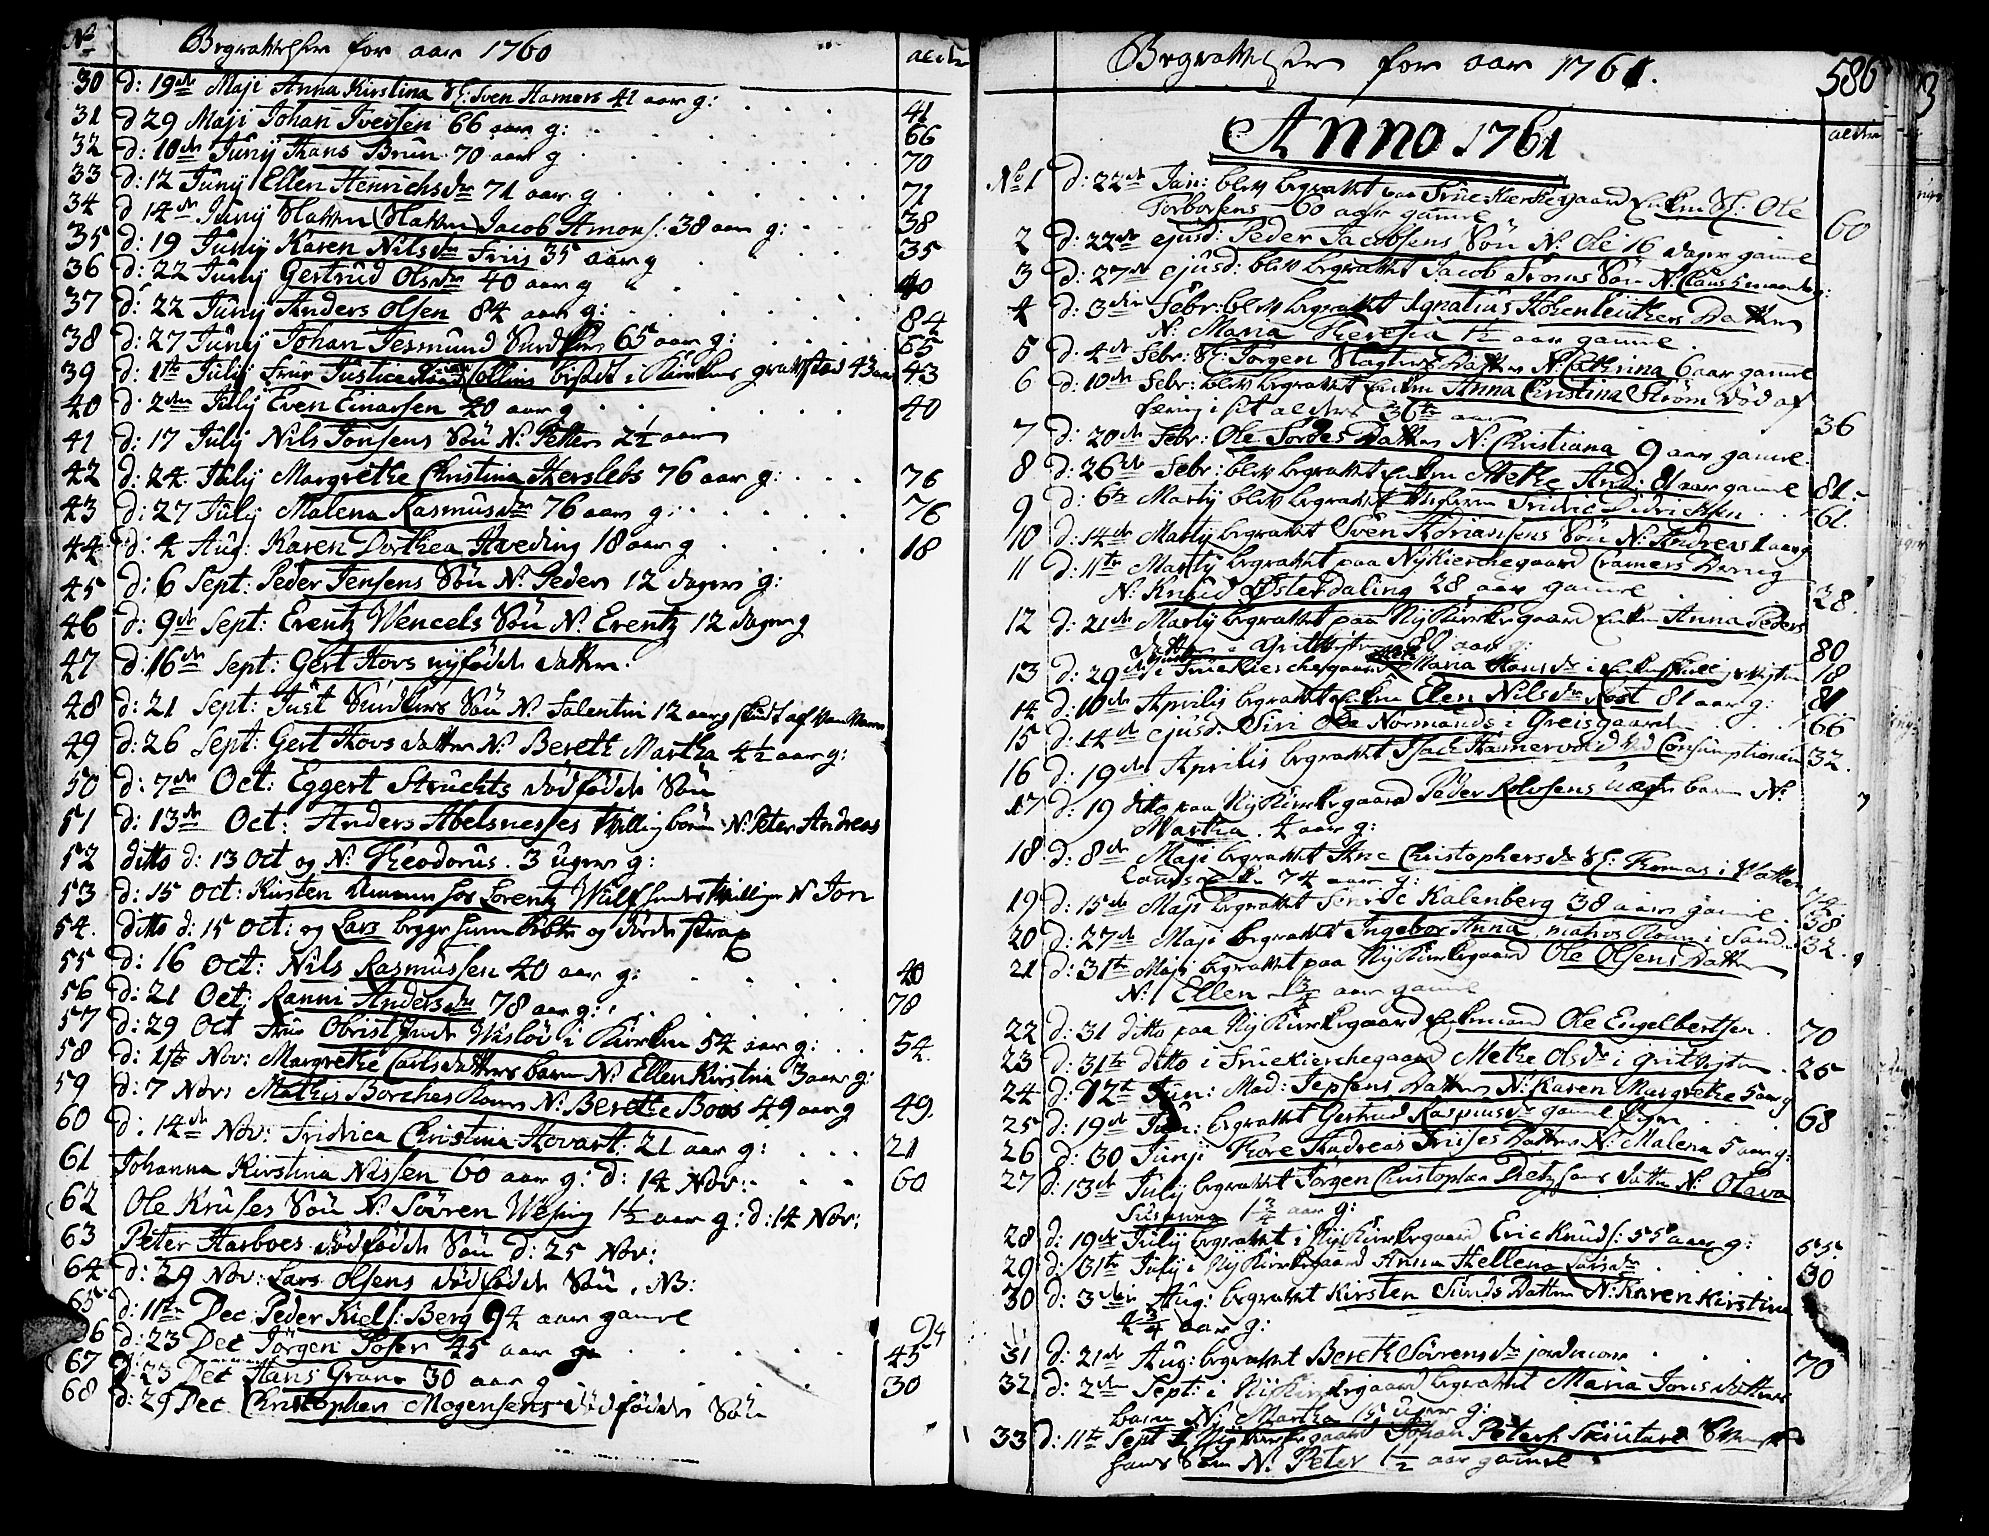 No Begravelser for aar 1760 alder
30 d: 19de Maji Anna Kirstina Sl: Sven Hamers 41 aar g: 41
31 d 29 Maji Johan Iversen 66 aar g: 66
32 d: 10de Junij Hans Brun 70 aar g 70
33 d: 12 Junij Ellen Henrichsdr 71 aar g 71
34 d 14de Junij Jacob Amons: 38 aar g: 38
35 d: 19 Junij Karen Nilsdr Friis 35 aar g 35
36 d: 22 Junij Gertrud Olsdr 40 aar g 40
37 d: 22 Junij Anders Olsen 84 aar g: 84
38 d: 27 Junij Johan Jesmund 65 aar g: 65
39 d: 1te Julij Frue Justice Collins bisadt i Kirkens gravstad 43 aar 43
40 d: 2den Julij Even Einarsen 40 aar g 40
41 d: 17 Julij Nils Jonsens Sön N: Petter 2½ aar
42 d: 24 Julij Margrethe Christina Herslebs 76 aar g: 76
43 d: 27 Julij Malena Rasmusdr 76 aar g: 76
44 d: 4 Aug: Karen Dorthea Hveding 18 aar g 18
45 d: 6 Sept: Peder Jensens Sön N: Peder 12 dager g:
46 d: 9de Sept: Erentz Wencels Sön N: Erentz 12 dager g
47 d: 16de Sept: Gert Hovs nyfödde datter
48 d: 21 Sept: Just Sön N: Falentin 12 aar
49 d: 26 Sept: Gert Hovs datter N: Berete Martha 4½ aar g:
50 d: 7de Oct: Eggert Struchts dödfödde Sön
51 d: 13de Oct: Anders Abelsnesses tvilling börn N: Peter Andreas
52 ditto d: 13 Oct og N: Theodorus. 3 uger g:
53 d: 15 Oct: Kirsten Lorentz Wulf tvillinger N Jon
54. ditto d: 15 Oct: og Lars begge hiemme döbte og döde strax
55 d: 16 Oct: Nils Rasmussen 40 aar g: 40
56 d: 21 Oct: Ranni Andersdr 78 aar g: 78
57 d: 29 Oct Frue Obristinde Wislöv i Kirken 54 aar g: 54.
58 d: 1te Nov: Margrethe Carlsdatters barn N: Ellen Kirstina 3 aar g:
59 d: 7 Nov: Mathis Borches Kone N: Berethe Boos 49 aar g 49.
60 d. 14de Nov: Fridrica Christina Hovart: 21 aar g: 21
61 Johanna Kirstina Nissen 60 aar g: d: 14 Nov: 60
62 Ole Kruses Sön N: Sövren Wesing 1½ aar g: d: 14 Nov:
63 Peter Harboes dödfödde Sön d: 25 Nov:
64 d: 29 Nov: Lars Olsens dödfödde Sön. NB:
65 d: 11te Dec Peder Kiels: Berg 94 aar gamel 94
66 d: 23 Dec Jörgen Poser 45 aar g: 45
67 d: 23 Dec Hans Gram 30 aar g 30
68 d: 29 Dec Christopher Mogensens dödfödde Sön
Begravelser for aar 1761. 586
Anno 1761 alder
No 1 d: 22de Jan: blev begravet paa Frue Kierkegaard Enken Sl: Ole
Torborsens 60 aar gamel. 60
2 d: 22de ejusd: Peder Jacobsens Sön N: Ole 16 dager gamel
3 d: 27de ejusd: blev begravet Jacob Froms Sön N: Claus 5 maaneder g:
4 d: 3die Febr: blev begravet Ignatius Hohenleitners datter
N: Maria Theresia 1½ aar gamel.
5 d: 4de Febr: Sl: Jörgen Slagters datter N: Cathrina 6 aar gamel
6 d: 10de Febr: blev begravet Enken Anna Christina Ström död af
i sit alders 36te aar 36
7 d: 20de Febr: Ole Tordes datter N: Christiana 9 aar gamel.
8 d: 26de Febr: blev begravet Enken Methe And: 81 aar gamel 81.
9 d: 6te Martij blev begravet Fridric Didrichsen 61.
10 d: 14de Martij begravet Sven Adriansens Sön N: Andreas 1 aar g
11 d: 11te Martij begravet paa Nykierchegaard Cramers Dreng
N: Knud Österdaling 28 aar gamel. 28.
12 d: 21de Martij begravet paa Ny Kirkegaard Enken Anna Peders
datter i 80 aar g: 80
13 d: 29de i Frue Kierchegaard Maria Hansdr i 18
14 d: 10de Aprilis begravet Enken Elen Nilsdr Kost 81 aar g: 81
15 d: 14de ejusd: Siri Ole Normands i Greisgaard 66
16 d: 19de Aprilis begravet Isach Hamervold död Consumptionen 32.
17 d: 19 ditto paa Ny Kirkegaard Peder Rolvsens barn N:
Martha. 4 aar g:
18. d: 8de Maji begravet Ane Christophersdr Sl: Thomas i Vatten
Lands Enke 74 aar g: 74
19 d: 15de Maji begravet Kalenberg 38 aar gamel. 38
20 d: 27de Maji begravet Ingebor Anna Kone i 32.
21 d: 31te Maji begravet paa Ny Kirkegaard Ole Olsens datter
N: Ellen ¾ aar gamel
22 d: 31 ditto paa Ny Kirkegaard Enkemand Ole Engelbertsen. 70
23 d: 31te ditto i Fruekierchegaard Methe Olsdr i 25
24 d: 12te Jun: Mad: Jepsens datter N: Karen Margrethe 5 aar g
25 d: 19de Jun: begravet Gertrud Rasmusdr gamel 68
26 d: 30 Junij Thore Andreas Friises datter N: Malena 5 aar g:
27 d: 13de Julij begravet Jörgen Christopher Dietzsens datter N: Olava
Susanna 1¾ aar g:
28 d: 19de Julij begravet i Ny Kirkegaard Eric Knuds: 55 aar g: 55.
29 d: 31te Julij i Ny Kirkegaard Anna Hellena Larsdr 30
30 d: 3die Aug: begravet Kirsten Sunds datter N: Karen Kirstina
4¾ aar g:
31 d: 21de Aug: begravet Berethe Sörensdr jordmoer 70
32 d: 2den Sept: i Ny Kirkegaard begravet Maria Jonsdatters
barn N: Martha 15 uger g:
33 d: 11te Sept i Nykirkegaard Johan Peters: Skiutard
hans Sön N: Peter 1½ aar gamel